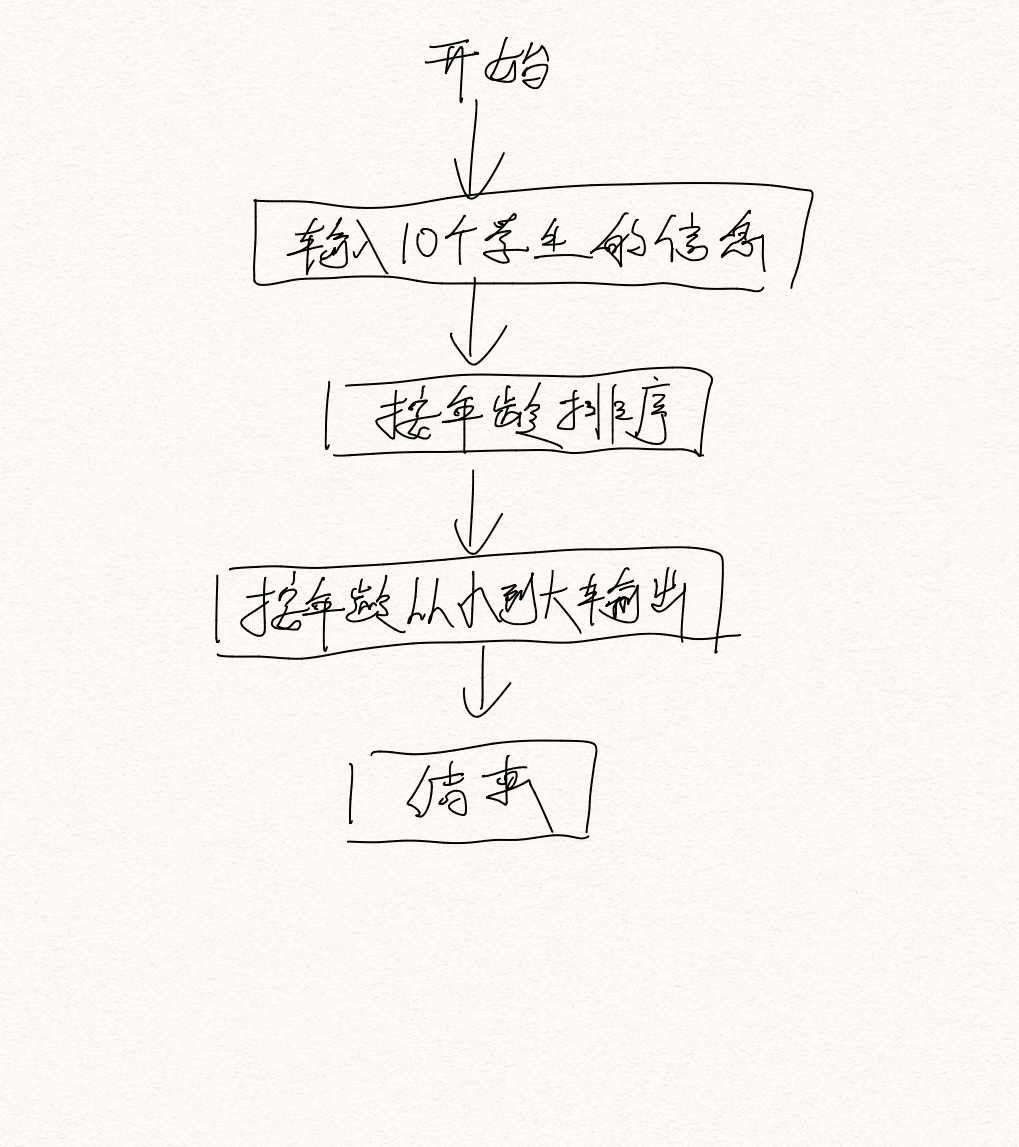 开始
输入10个学生的信息
按年龄排序
按年龄从小到大输出
结束